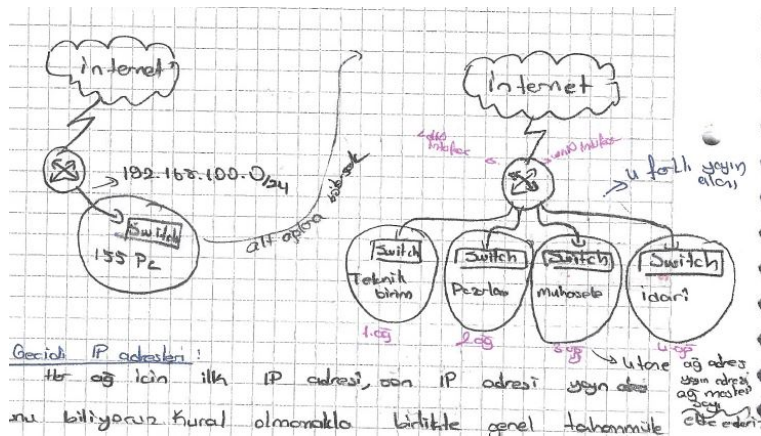 internet
192.168.100.0/24
Switch
155 Pc
alt ağlara bölersek
internet
4 farklı yayın alanı
Switch
Teknik birim
1.ağ
Switch
Pazarlama
2.ağ
Switch
muhasebe
3.ağ
Switch
idari
4.ağ
4 tane ağ adresi
yayın adresi
ağ maskesi
elde ederiz
Gecidi IP adresleri :
ağ için ilk IP adresi, son IP adresi yayın
biliyoruz. Kural olmamakla birlikte genel